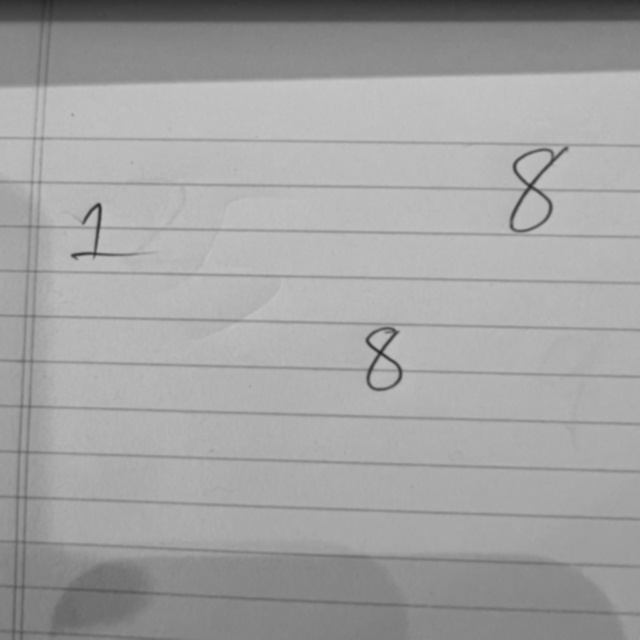 1 8
8